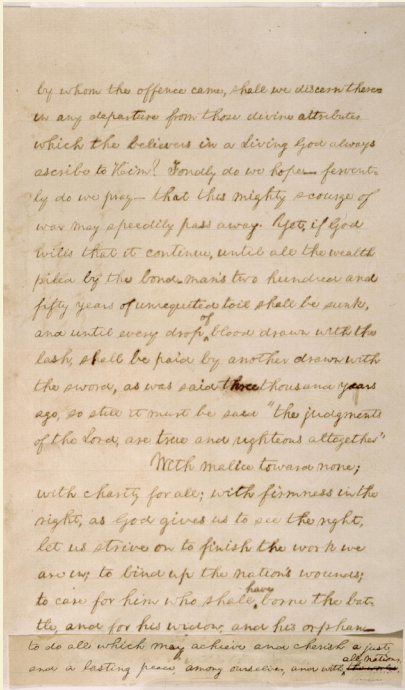 by whom the offence came, shall we discern therein
in any departure from those divine attributes
which the believers in a Living God always
ascribe to Him? Fondly do we hope— fervent-
ly do we pray— that this mighty scourge of
war may speedily pass away. Yet, if God
wills that it continue, until all the wealth
piled by the bond-man's two hundred and
fifty years of unrequited toil shall be sunk,
and until every drop of blood drawn with the
lash, shall be paid by another drawn with
the sword, as was said three thousand years
ago, so still it must be said "the judgments
of the Lord, are true and righteous altogether"
With malice toward none;
with charity for all; with firmness in the
right, as God gives us to see the right,
let us strive on to finish the work we
are in; to bind up the nation's wounds;
to care for him who shall have borne the bat-
tle, and for his widow, and his orphan—
to do all which may achieve and cherish a just,
and a lasting peace, among ourselves, and with all nations. the world